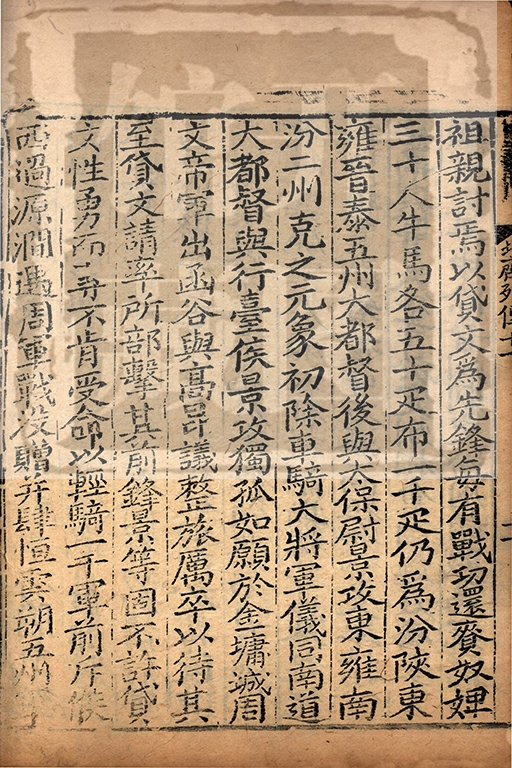 祖親討焉以貸文爲先鋒每有戰功還賚奴婢
三十人牛馬各五十疋布一千疋仍爲汾陝東
雍晉泰五州大都督後與太保尉景攻東雍南
汾二州克之元象初除車騎大將軍儀同南道
大都督與行臺侯景攻獨孤如願於金墉城周
文帝軍出函谷與高昂議整旅厲卒以待其
至貸文請率所部擊其前鋒景等固不許貸
文性勇而專不肯受命以輕騎一千軍前斥候
西過源澗遇周軍戰没贈并肆恒雲朔五州